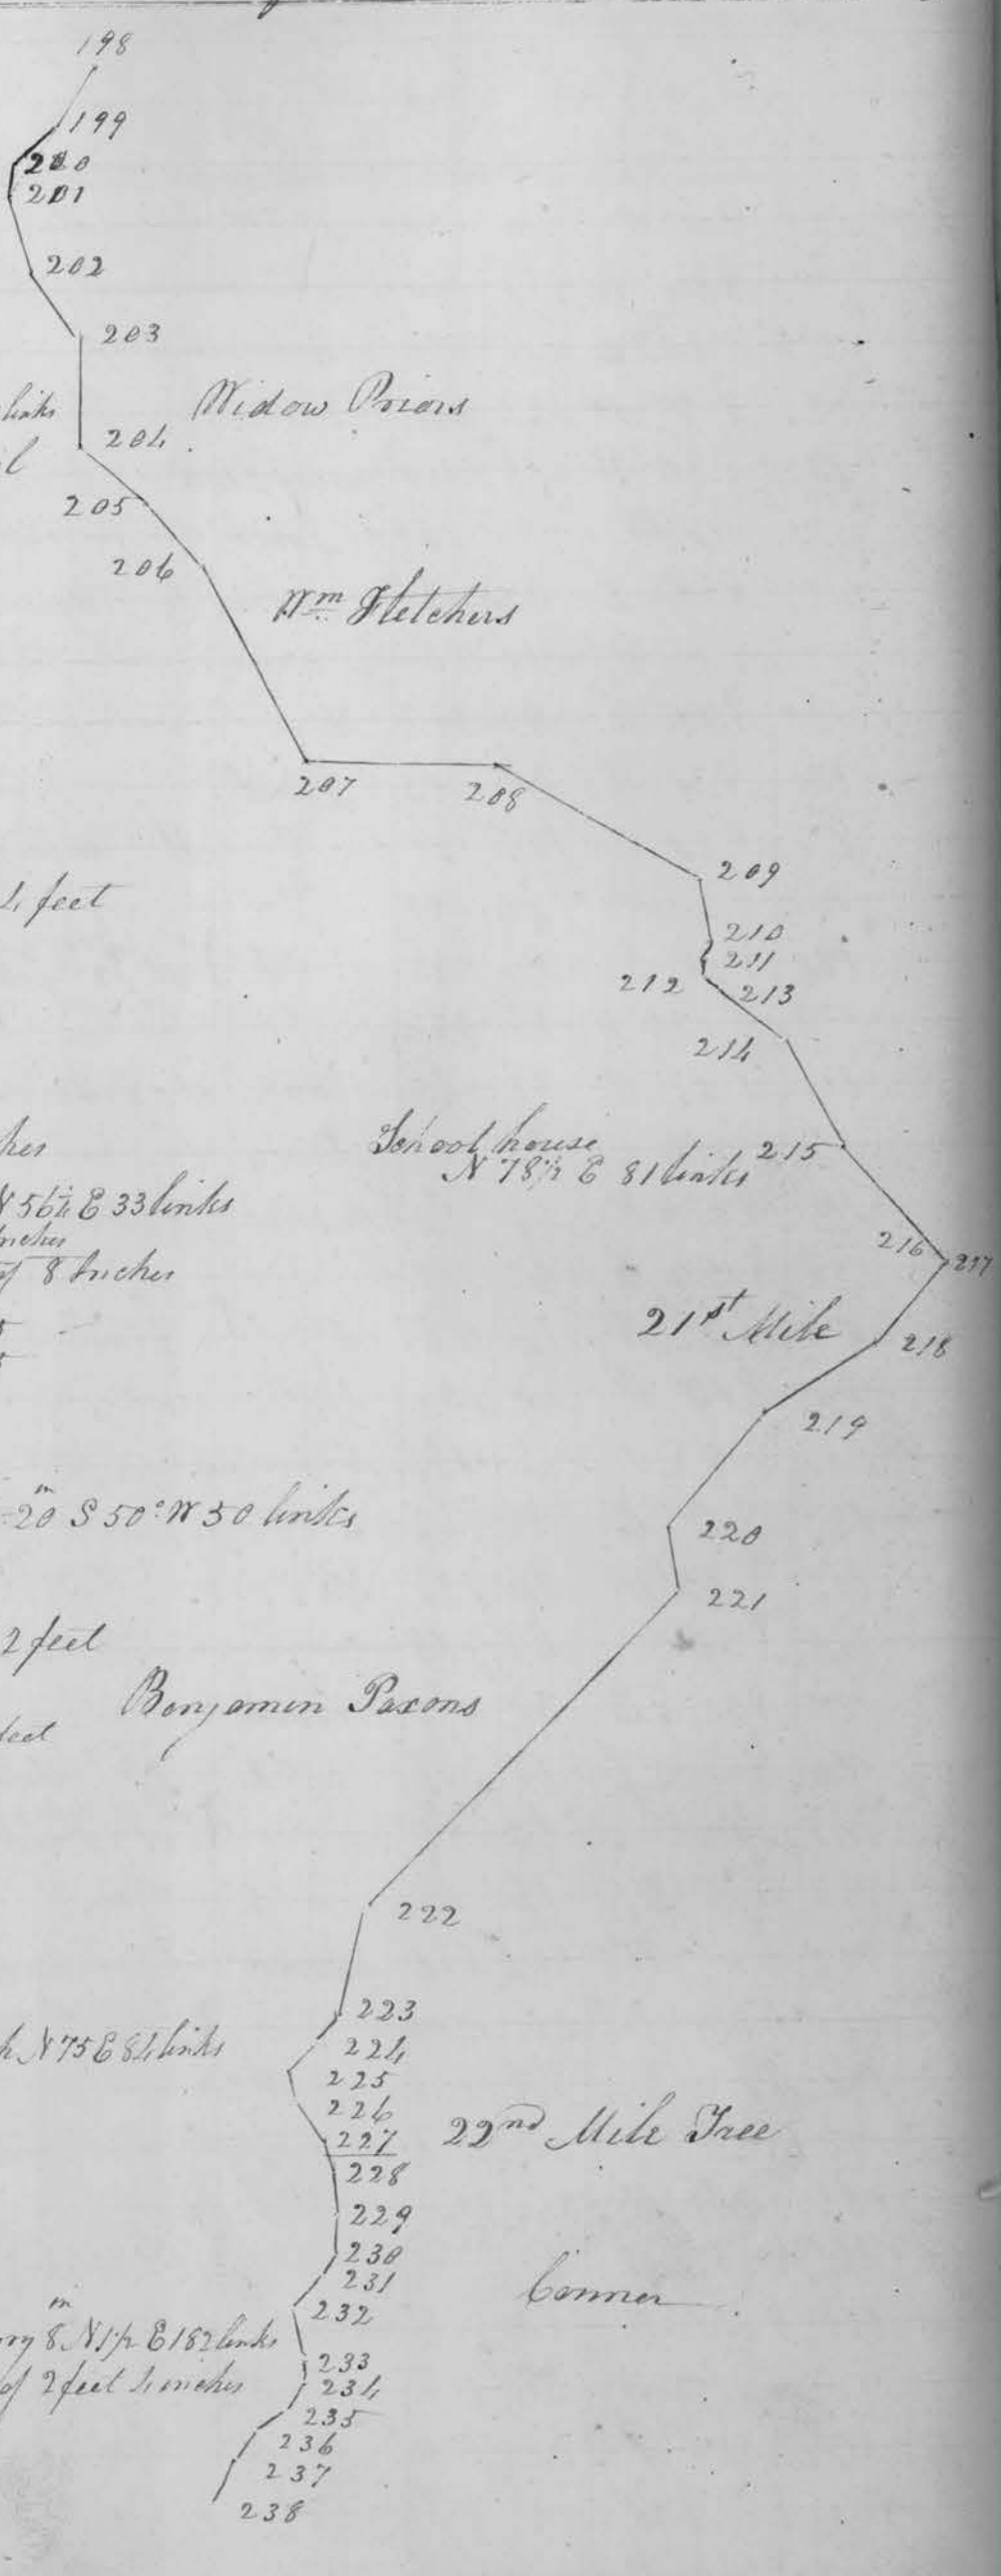 198
199
200
201
202
203
links
Widow Priors
204
205
206
Wm Fletchers
207
208
4 feet
209
210
211
212
213
214
School house
N 78 1/2 E 81 links
215
N 56 1/4 E 33 links
216
217
Inches
of 8 Inches
21st Mile
218
219
20 S 50° W 50 links
220
221
2 feet
Benjamin Paxons
feet
222
223
N 75 E 84 links
224
225
226
227
22nd Mile Tree
228
229
230
231
Conner
232
8 N 1 1/2 E 182 links
233
of 2 feet 4 inches
234
235
236
237
238